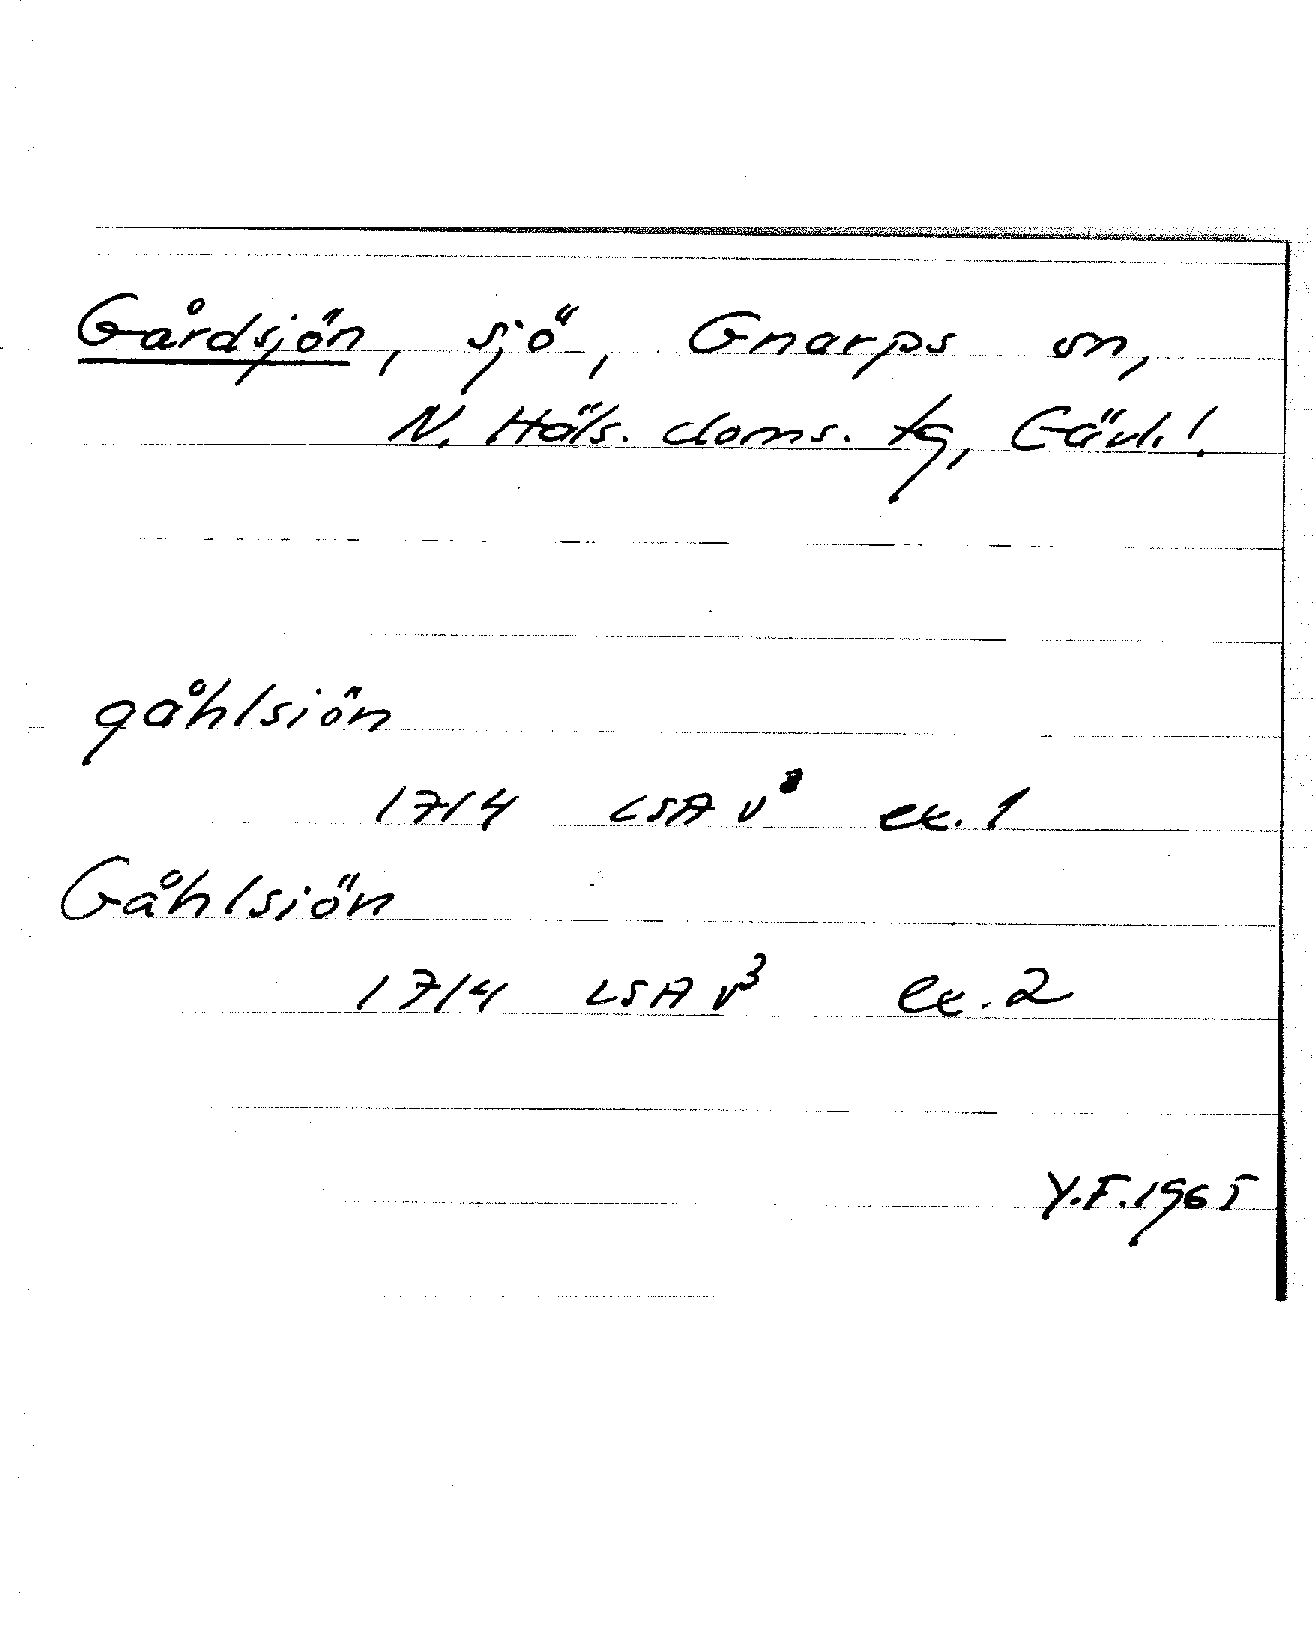 Gårdsjön, sjö, Gnarps sn,
N. Häls. doms. tg, Gävl.!
gåhlsiön
1714 LSA V³ ex. 1
Gåhlsiön
1714 LSA V³ ex. 2
Y.F. 1965